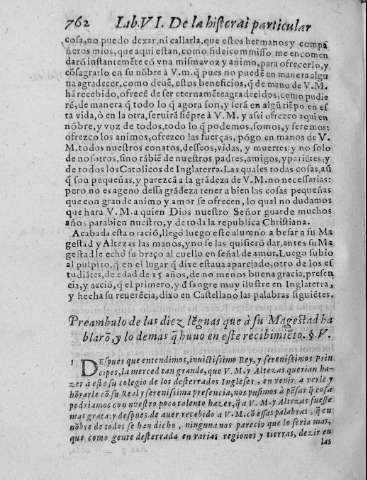 762 Lib.VI. De la historai particular
cosa, no puedo dexar, ni callarla, que estos hermanos y compa
ñeros mios, que aqui estan, como fideicommisso me encomen
darõ instantemẽte cõ vna misma voz y animo, para ofrecerlo, y
cõsagrarlo en su nõbre à V.m. q̃ pues no puedẽ en manera algu
na agradecer, como deuẽ, estos beneficios, q̃ de mano de V.M.
hã recebido, ofrecẽ de ser eternamẽte agradecidos, como pudie
rẽ, de manera q̃ todo lo q̃ agora son, y serã en algũ tiẽpo en es
ta vida, ò en la otra, seruirá siẽpre à V.M. y assi ofrezco aqui en
nõbre, y voz de todos, todo lo q̃ podemos, somos, y seremos
ofrezco los animos, ofrezco las fuerças, põgo en manos de V.
M. todos nuestros conatos, desseos, vidas, y muertes y no solo
de nosotros, sino tãbiẽ de nuestros padres, amigos, y pariẽtes, y
de todos los Catolicos de Inglaterra. Las quales todas cosas, aũ
q̃ son pequeñas, y parezcã a la grãdeza de V.M. no necessarias:
pero no es ageno dessa grãdeza tener a bien las cosas pequeñas
que con grande animo y amor se ofrecen, lo qual no dudamos
que hara V.M. a quien Dios nuestro Señor guarde muchos
años para bien nuestro, y de toda la republica Christiana.
Acabada esta oraciõ, llegò luego este alumno a besar a su Ma
gestad y Altezas las manos, y no se las quisierõ dar, antes su Ma
gestad le echò su braço al cuello en señal de amor. Luego subio
al pulpito, q̃ en el lugar q̃ dixe estaua aparejado, otro de los es
tudiãtes, de edad de 25 años, de no menos buena gracia, presen
cia, y acciõ, q̃ el primero, y d sangre muy ilustre en Inglaterra,
y hecha su reuerẽcia, dixo en Castellano las palabras siguiẽtes.
Preambulo de las diez lẽguas que à su Magestad ha
blarõ, y lo demas q̃ huuo en este recibimiẽto. §. V.
1 DEspues que entendimos, inuictissimo Rey, y serenissimos Prin
cipes, la merced tan grande, que V.M. y Altezas querian ha
zer a este su colegio de los desterrados Ingleses, en venir, a verle y
hõrarle cõ su Real y serenissima presencia, nos pusimos à pẽsar q̃ cosa
podriamos con nuestro poco talento hazer, q̃ a V.M. y Altezas fuesse
mas grata, y despues de auer recebido a V.M. cõ essas palabras, q̃ en
nõbre de todos se han dicho, ninguna nos parecio que lo seria mas,
que como gente desterrada en varias regiones y tierras, dezir en
las